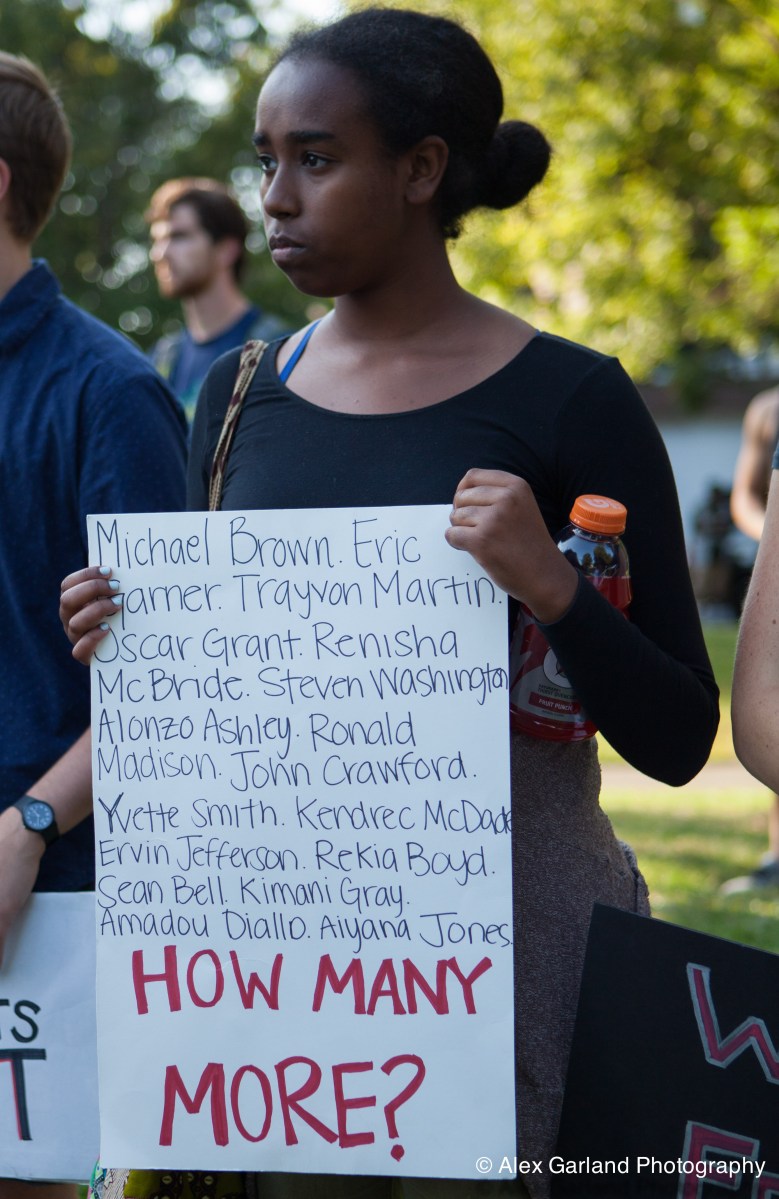 Michael Brown. Eric
Garner. Trayvon Martin.
Oscar Grant. Renisha
McBride. Steven Washington
Alonzo Ashley. Ronald
Madison. John Crawford.
Yvette Smith. Kendrec McDade
Ervin Jefferson. Rekia Boyd.
Sean Bell. Kimani Gray.
Amadou Diallo. Aiyana Jones.
HOW MANY
MORE?
FRUIT PUNCH
TS
T
W
F
© Alex Garland Photography